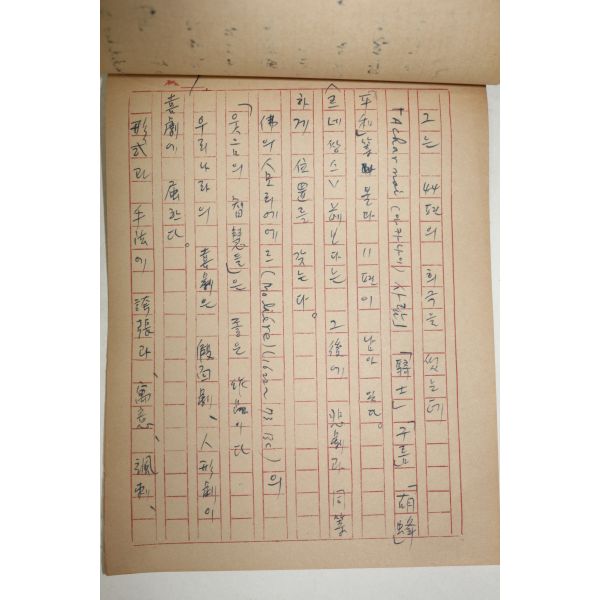 그는 44편의 희극을 썼는데
「Acharnai (아카나이) 사람」 「騎士」 「구름」 「胡蜂」
「平和」等 불과 11편이 남아 있다.
<르네쌍스> 그後에 悲劇과 同等
하게 位置를 갖는다.
佛의 人 모리에에르 (Molière) (1622~73 BC) 의
「웃음의 智慧들」은 좋은 作品이다
우리나라의 喜劇은 假面劇、人形劇이
喜劇에 屬한다。
形式과 手法에 誇張과、寓意、諷刺、